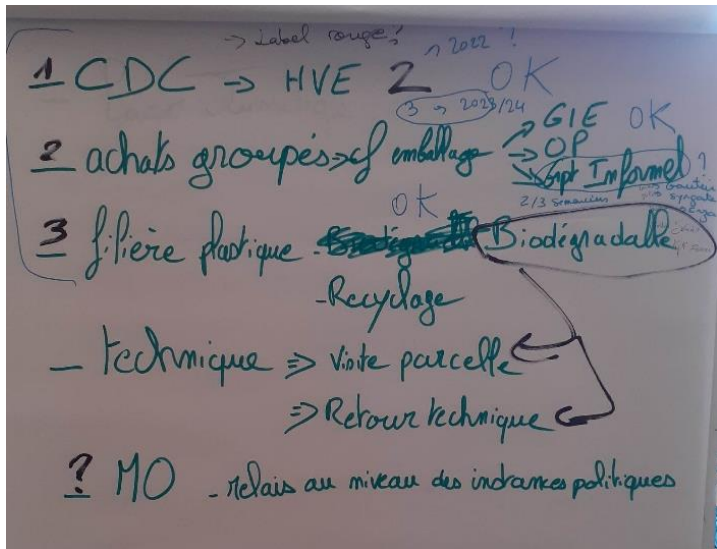 -> Label rouge?
1 CDC -> HVE 2 -> 2022 ? OK
3 -> 2023/24
2 achats groupés => cf emballage -> GIE OK
-> OP
-> Gpt Informel ?
2/3 semaines
OK
3 filière plastique - Biodégradable
- Recyclage
- technique => Visite parcelle
=> Retour technique
? MO - relais au niveau des instances politiques